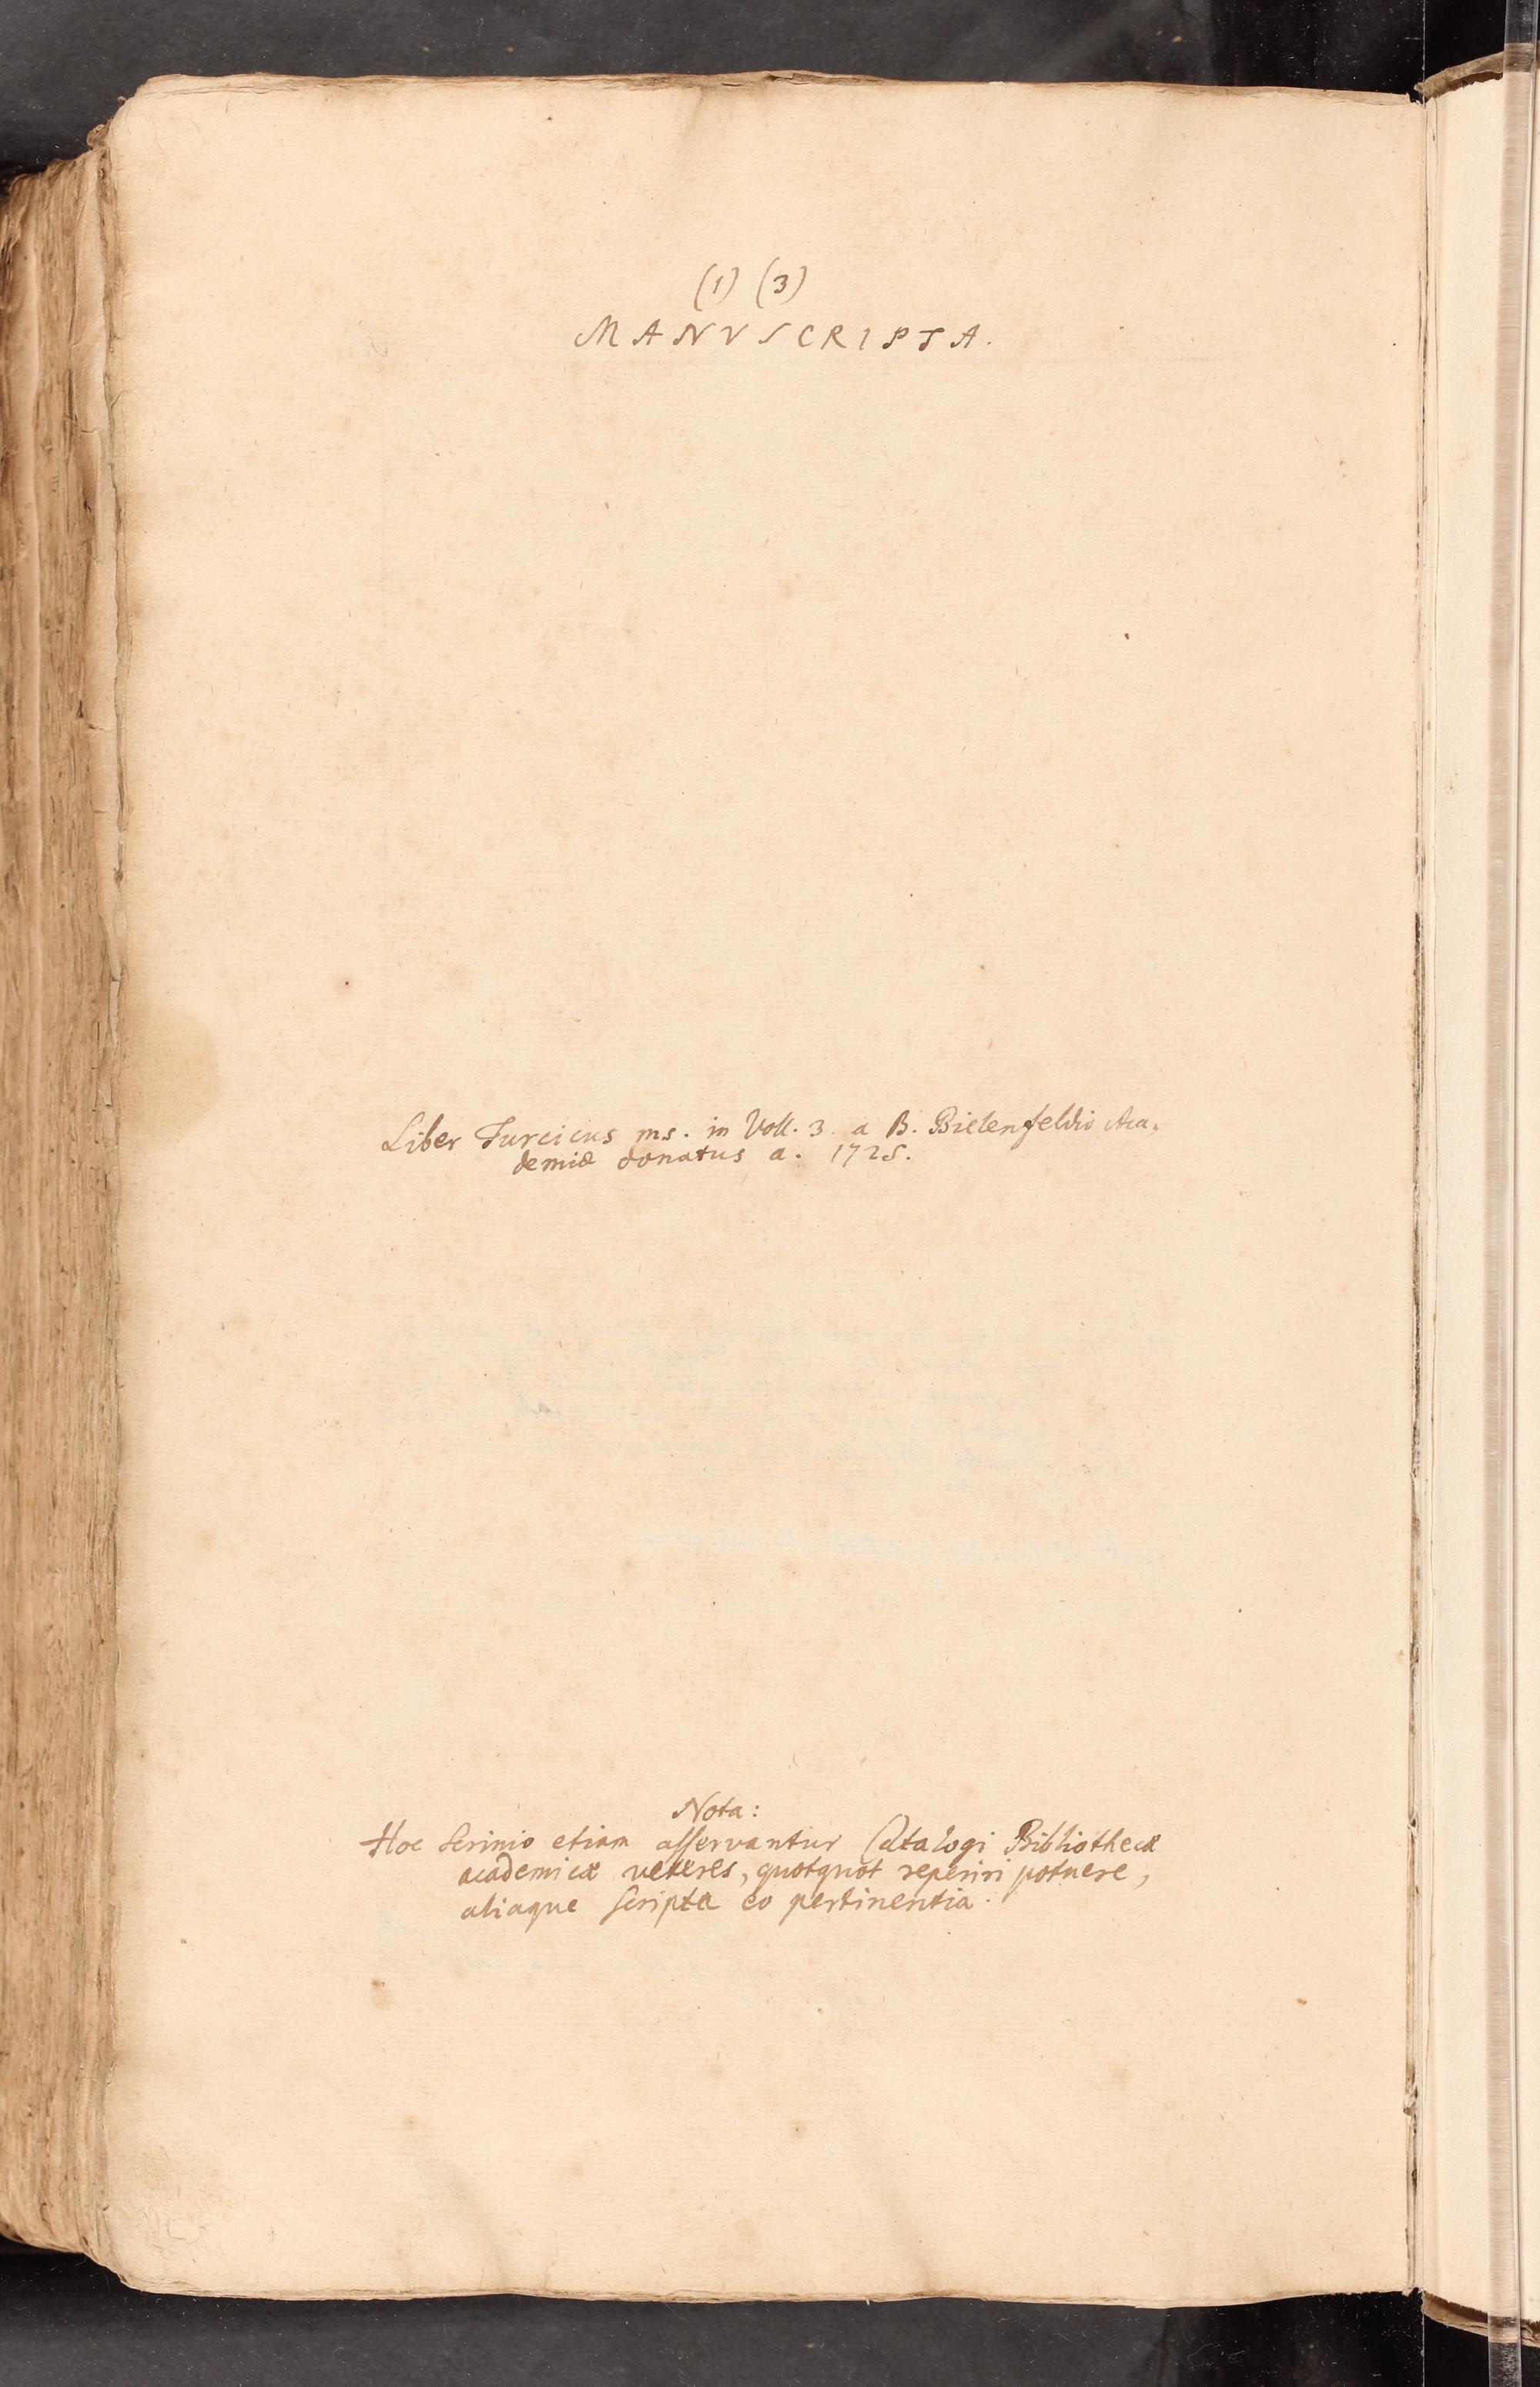 (1) (3)
MANVSCRIPTA.
Liber Turcicus ms. in Voll. 3. a B. Bielenfeldio Aca-
demiæ donatus a. 1725.
Nota:
Hoc Scrinio etiam asservantur Catalogi Bibliothecæ
academicæ veteres, quotquot reperiri potuere,
aliaque scripta eo pertinentia.